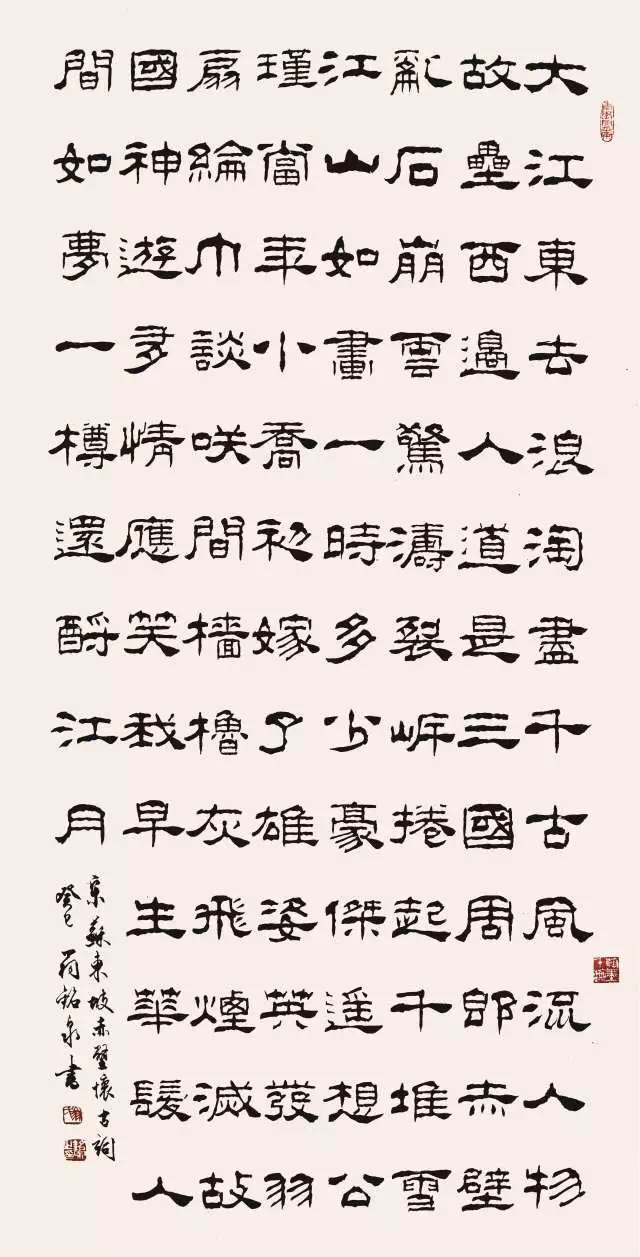 大江東去浪淘盡千古風流人物
故壘西邊人道是三國周郎赤壁
亂石崩雲驚濤裂岸捲起千堆雪
江山如畫一時多少豪傑遥想公
瑾當年小喬初嫁了雄姿英發羽
扇綸巾談咲間檣櫓灰飛煙滅故
國神遊多情應笑我早生華髮人
間如夢一樽還酹江月
宋蘇東坡赤壁懷古詞
癸巳翁銘泉書